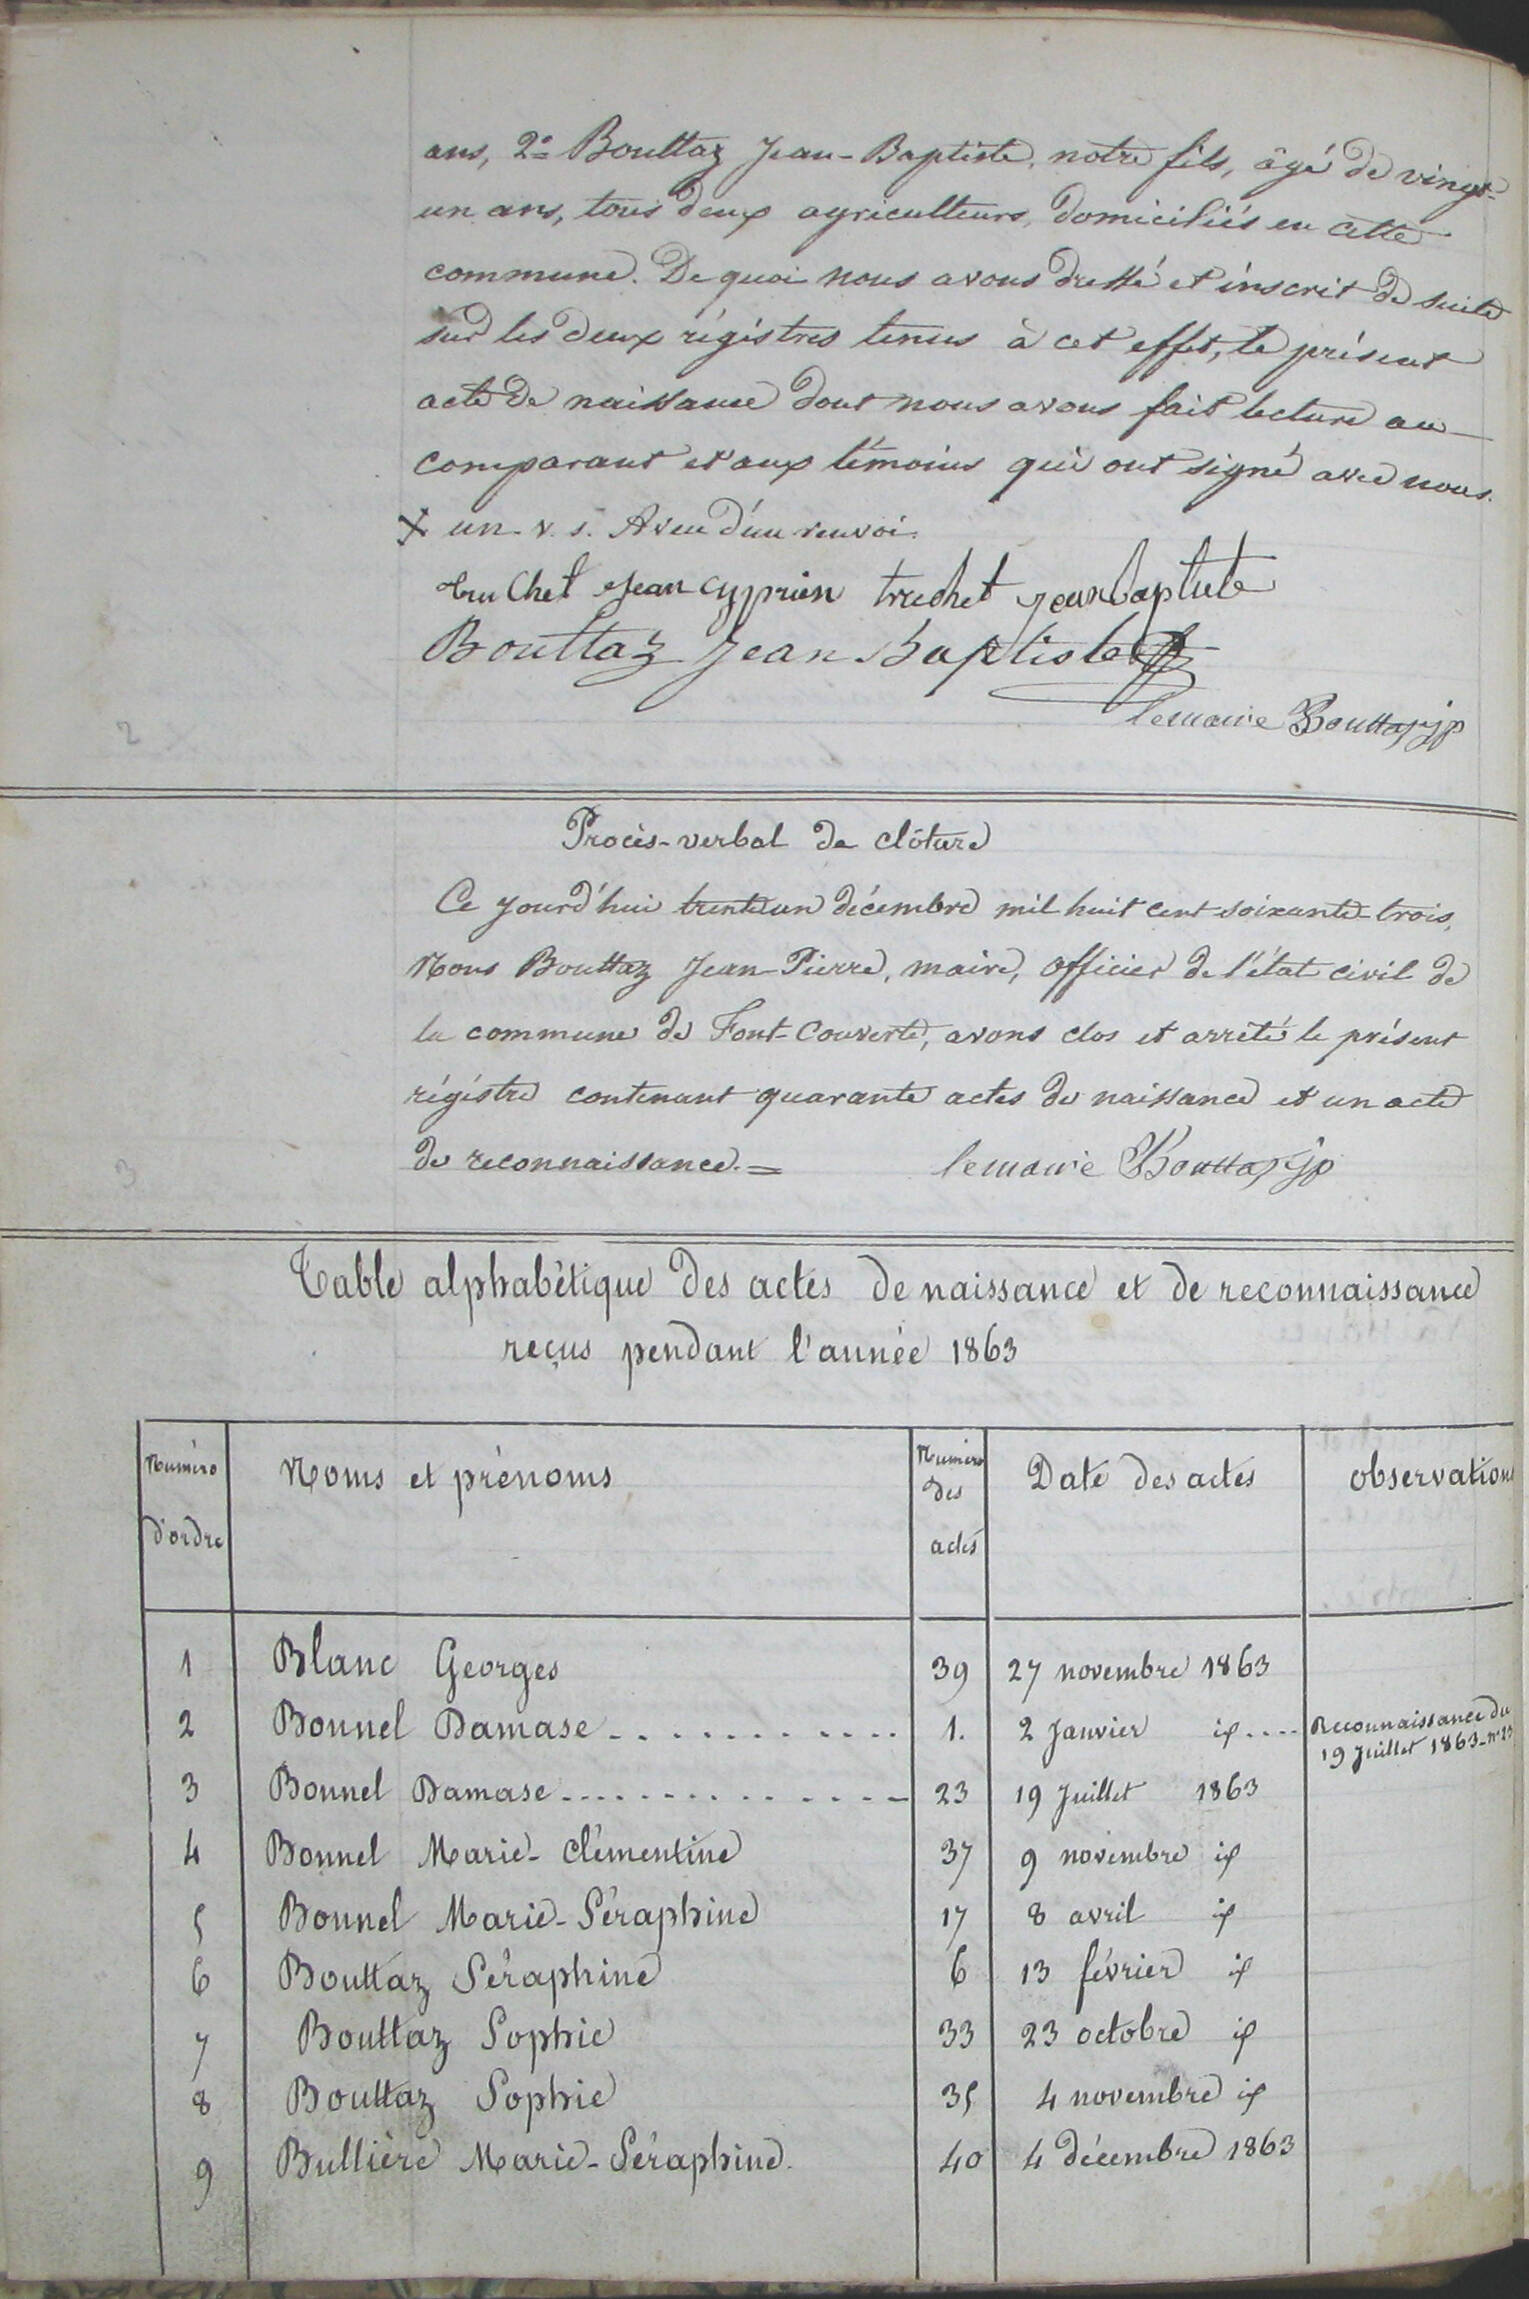 ans, 2° Bouttaz Jean-Baptiste, notre fils, âgé de vingt-
un ans, tous deux agriculteurs, domiciliés en cette
commune. De quoi nous avons dressé et inscrit de suite
sur les deux régistres tenus à cet effet, le présent
acte de naissance dont nous avons fait lecture au
comparant et aux témoins qui ont signé avec nous.
X un. v. s. Aveu d'un renvoi.
truchet Jean cyprien truchet jean baptiste
Bouttaz Jean Baptiste
le maire Bouttaz jp
2
Procès-verbal de clôture
Ce jourd'hui trente un décembre mil huit cent soixante-trois,
Nous Bouttaz Jean-Pierre, maire, officier de l'état civil de
la commune de Font-Couverte, avons clos et arrêté le présent
régistre contenant quarante actes de naissance et un acte
de reconnaissance. =
le maire Bouttaz jp
3
Table alphabétique des actes de naissance et de reconnaissance
reçus pendant l'année 1863
Numéro d'ordre Noms et prénoms Numéro des actes Date des actes observations
1 Blanc Georges 39 27 novembre 1863
2 Bonnel Damase ............ 1. 2 Janvier id .... Reconnaissance du
19 Juillet 1863 - n° 23
3 Bonnel Damase .............. 23 19 Juillet 1863
4 Bonnel Marie-Clémentine 37 9 novembre id
5 Bonnel Marie-Séraphine 17 8 avril id
6 Bouttaz Séraphine 6 13 février id
7 Bouttaz Sophie 33 23 octobre id
8 Bouttaz Sophie 35 4 novembre id
9 Bullière Marie-Séraphine. 40 4 décembre 1863